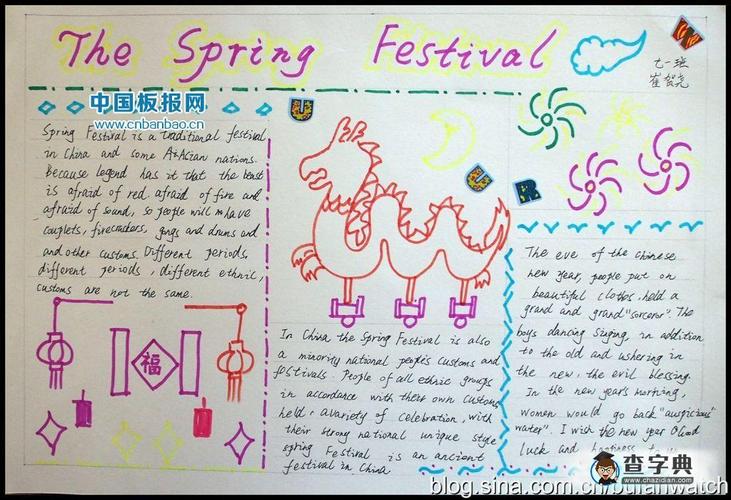 The Spring Festival
七一班
崔贺尧
中国板报网
www.cnbanbao.cn
Spring Festival is a traditional festival
in China and some Asian nations.
Because legend has it that the beast
is afraid of red. afraid of fire and
afraid of sound, so people will have
couplets, firecrackers, gongs and drums and
and other customs. Different periods,
different periods, different ethnic,
customs are not the same.
福
In China the Spring Festival is also
a minority national people's customs and
festivals. People of all ethnic groups
in accordance with their own customs
held, a variety of celebration, with
their strong national unique style
spring Festival is an ancient
festival in China
The eve of the Chinese
new year, people put on
beautiful clothes, hold a
grand and grand "sorcerer". The
boys dancing singing, in addition
to the old and ushering in
the new, the evil blessing.
In the new year's morning,
women would go back "auspicious
water". I wish the new year Good
luck and
查字典
www.chazidian.com
blog.sina.com.cn/bufanwatch